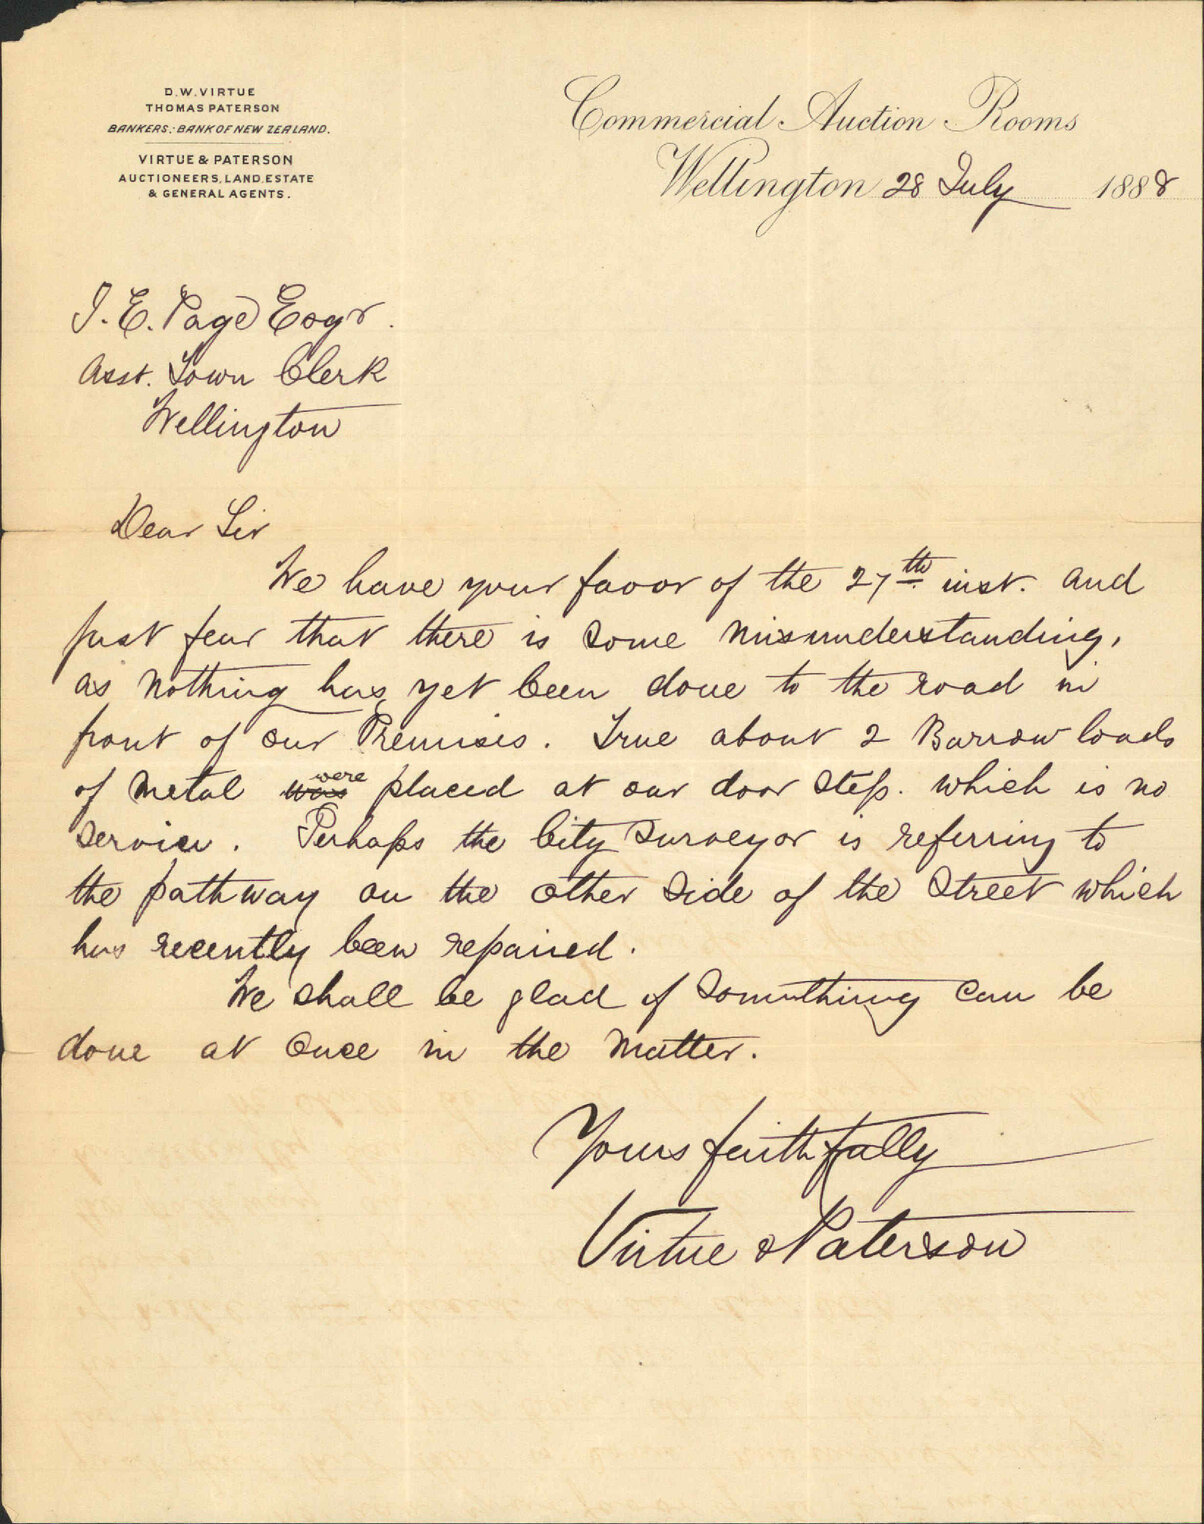 D.W. VIRTUE
THOMAS PATERSON
BANKERS: BANK OF NEW ZEALAND.
VIRTUE & PATERSON
AUCTIONEERS, LAND, ESTATE
& GENERAL AGENTS.
Commercial Auction Rooms
Wellington 28 July 1888
J. E. Page Esqr.
Asst. Town Clerk
Wellington
Dear Sir
We have your favor of the 27th inst. and
just fear that there is some misunderstanding,
as nothing has yet been done to the road in
front of our Premises. True about 2 Barrow loads
of metal was were placed at our door step. which is no
service. Perhaps the City Surveyor is referring to
the pathway on the other side of the Street which
has recently been repaired.
We shall be glad if something can be
done at once in the matter.
Yours faithfully
Virtue & Paterson